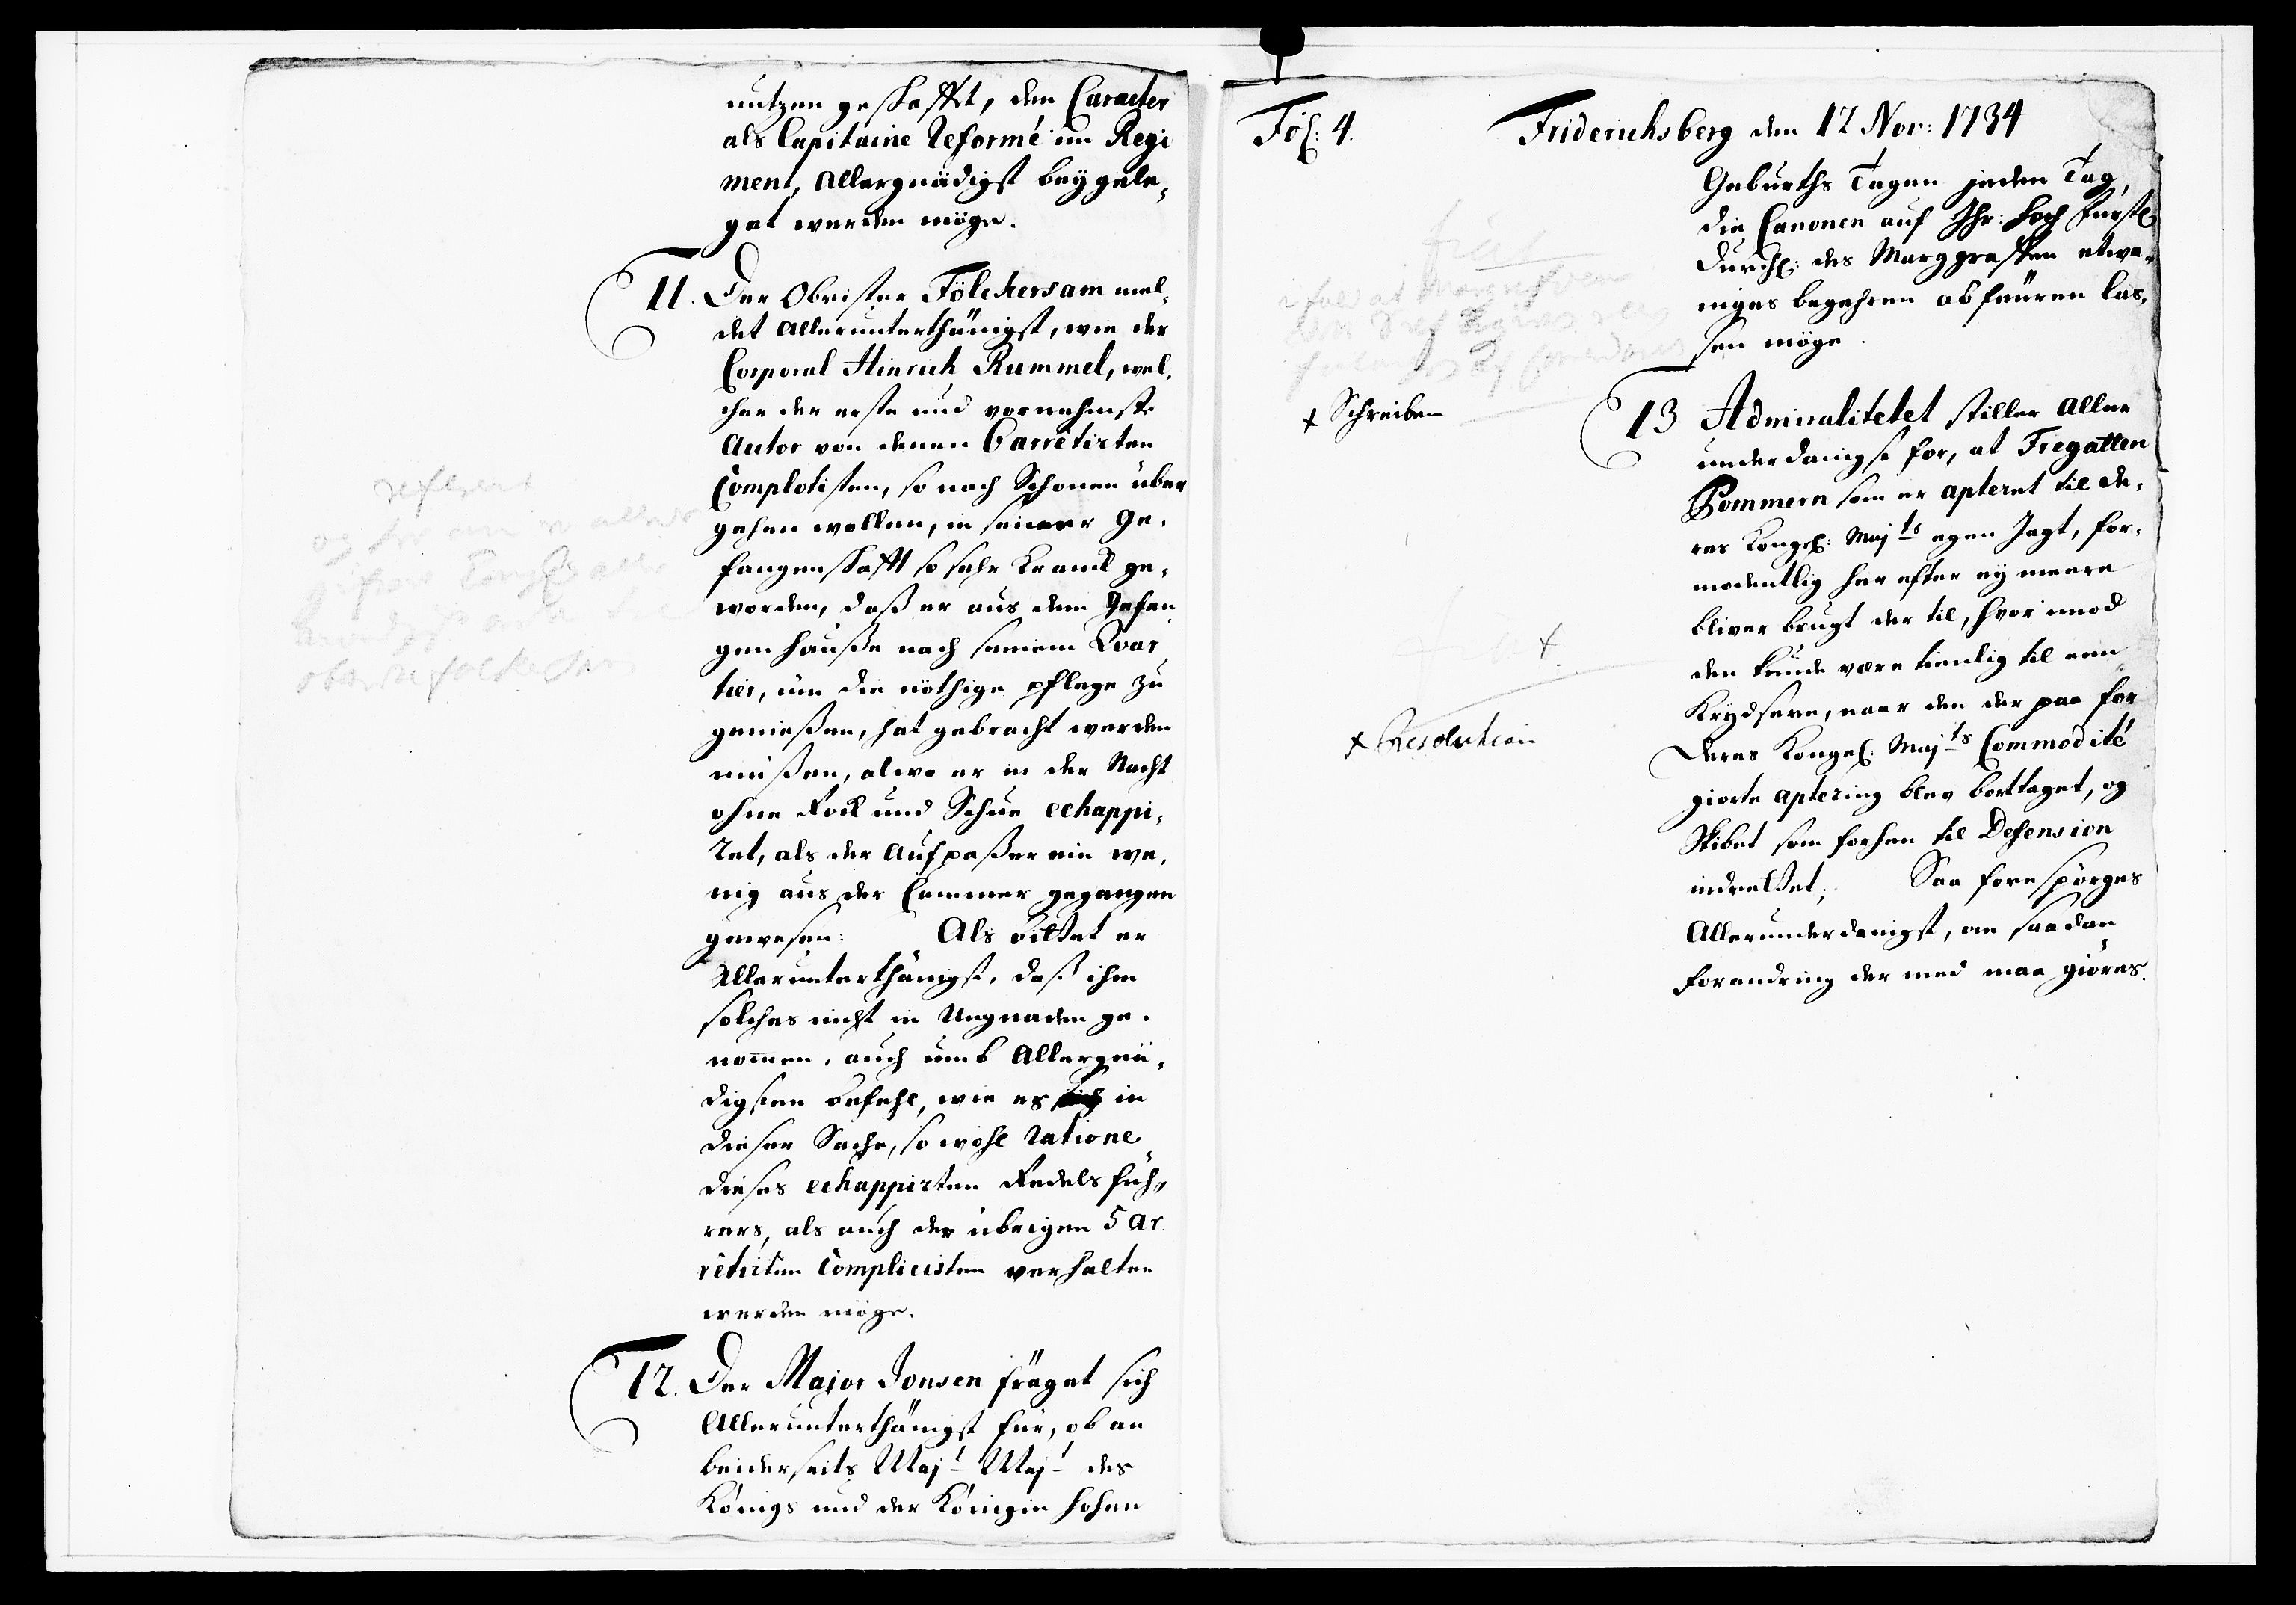 nutzen geschafft, den Caracter
als Capitaine Reformé im Regi
ment, Allergnädigst beÿ gele,
get werden möge.
11. Der Obrister Fölckersam mel,
det Allerunterthänigst, wie der
Corporal Hinrich Rummel, wel,
cher der erste und vornehmste
Autor von denen 6 arrêtirten
Complotisten, so nach Schonen über
gehen wollen, in seiner Ge,
fangenschafft so sehr kranck ge,
worden, daß er aus dem Gefan
gen hauße nach seinem Quar
tier, um die nöthige pflege zu
genießen, hat gebracht werden
müßen, alwo er in der Nacht
ohne Rock und Schue echappi,
ret, als der Aufpaßer ein we,
nig aus der Cammer gegangen
gewesen: Als bittet er
Allerunterthänigst, daß ihm
solches nicht in Ungnaden ge,
nommen, auch umb Allergnä,
digsten befehl, wie es in
dieser Sache, so wohl ratione
dieses echappirten Redelsfüh,,
rers, als auch der übrigen 5 ar
rêtirten Complicisten verhalten
werden möge.
12. Der Major Jonsen fräget sich
Allerunterthänigst für, ob an
beiderseits Maj<sup>t</sup> Maj<sup>t</sup> des
Königs und der Königin hohen
refereret
Fol: 4. Friderichsberg den 12 Nov: 1734
Geburths Tagen jeden Tag,
die Canonen auf Ihr: Hoch Fürstl
Durchl: des Marggraffen etwa,
niges begehren abfeüren las,
sen möge.
fiat
i fald at Margrefven
x Schreiben
13 Admiralitetet stiller Aller
underdanigst for, at Fregatten
Pommern som er apteret til De,
res Kongel: Maj<sup>ts</sup> egen Jagt, for,
modentlig her efter eÿ meere
bliver brugt der til, hvor imod
den kunde være tienlig til een
Krydsere, naar den der paa for
Deres Kongel: Maj<sup>ts</sup> Commodité
giorte aptering blev borttaget, og
Skibet som forhen til Defension
indrettet; Saa forespørges
Allerunderdanigst, om saadan
forandring der med maa giøres.
fiat
x Resolution